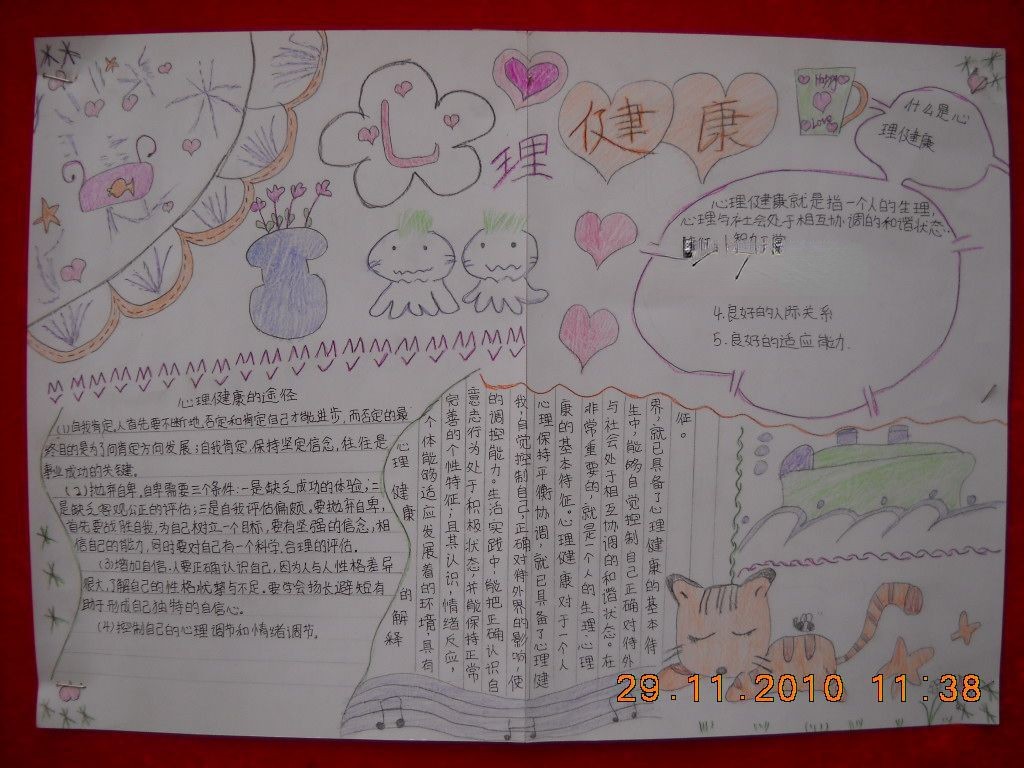 心理健康
Happy
Love
什么是心
理健康
心理健康就是指一个人的生理,
心理与社会处于相互协调的和谐状态.
4.良好的人际关系
5.良好的适应能力.
心理健康的途径
(1)自我肯定,人首先要不断地否定和肯定自己才能进步,而否定的最
终目的是为了向肯定方向发展;自我肯定,保持坚定信念,往往是
事业成功的关键。
(2)抛弃自卑,自卑需要三个条件:一是缺乏成功的体验,二
是缺乏客观公正的评估;三是自我评估偏颇。要抛弃自卑,
首先要战胜自我,为自己树立一个目标,要有坚强的信念,相
信自己的能力,同时要对自己有一个科学,合理的评估。
(3)增加自信,人要正确认识自己,因为人与人性格差异
很大,了解自己的性格优势与不足.要学会扬长避短有
助于形成自己独特的自信心。
(4)控制自己的心理调节和情绪调节。
心理健康的解释
个体能够适应发展着的环境,具有
完善的个性特征;且其认识,情绪反应,
意志行为处于积极状态,并能保持正常
的调控能力。生活实践中,能把正确认识自
我,自觉控制自己,正确对待外界的影响,使
心理保持平衡协调,就已具备了心理健
康的基本特征。心理健康对于一个人
非常重要的,就是一个人的生理、心理
与社会处于相互协调的和谐状态。在
生中,能够自觉控制自己正确对待外
界,就已具备了心理健康的基本特
征。
29.11.2010 11:38